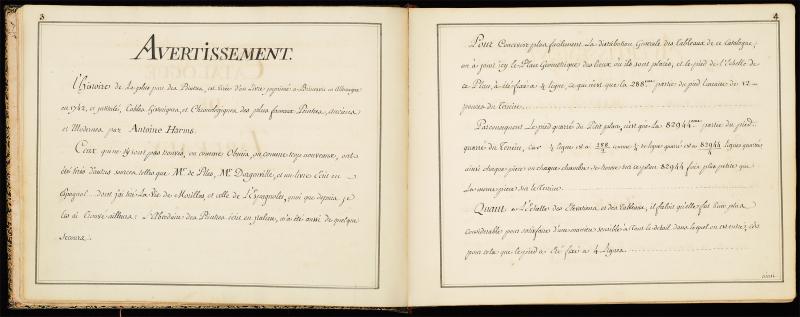 3
AVERTISSEMENT.
L'histoire de la plus part des Peintres, est tirée d'un Livre imprimé à Brunsvic en Allemagne
en 1742, et intitulé, Tables Historiques, et Chronologiques des plus fameux Peintres, Anciens
et Modernes, par Antoine Harms.
Ceux qui ne s'y sont pas trouvés, ou comme Obmis, ou comme trop nouveaux, ont
été tirés d'autres sources, telles que Mr. de Piles, Mr. Dargenville, et un livre écrit en
Espagnol dont j'ai tiré La Vie de Morillos, et celle de L'Espagnolet, quoi que depuis, je
les ai trouvé ailleurs: L'Abcedario des Peintres écrit en Italien, m'a été aussi de quelque
secours.
4
Pour Concevoir plus facilement La distribution Generale des Tableaux de ce Catalogue,
on a joint icy le Plan Geometrique des lieux où ils sont placés, et le pied de l'Echelle de
ce Plan, a été fixé a ½ ligne, ce qui n'est que la 288eme partie du pied Lineaire de 12
pouces du Terrein.
Par consequent Le pied quarré du Petit plan, n'est que La 82944eme partie du pied
quarré du Terrein, car ½ ligne est a 288/2 comme ¼ de ligne quarré est a 82944/4 lignes quarrés
ainsi chaque piece ou chaque chambre se trouve sur ce plan 82944 fois plus petite que
La meme piece sur le Terrein.
Quant a L'Echelle des Elevations et des Tableaux, il falloit qu'elle fut bien plus
Considerable pour satisfaire d'une maniere sensible à tout le detail dans lequel on est entré; c'est
pour cela que le pied a été fixé a 4 Lignes.
ainsi